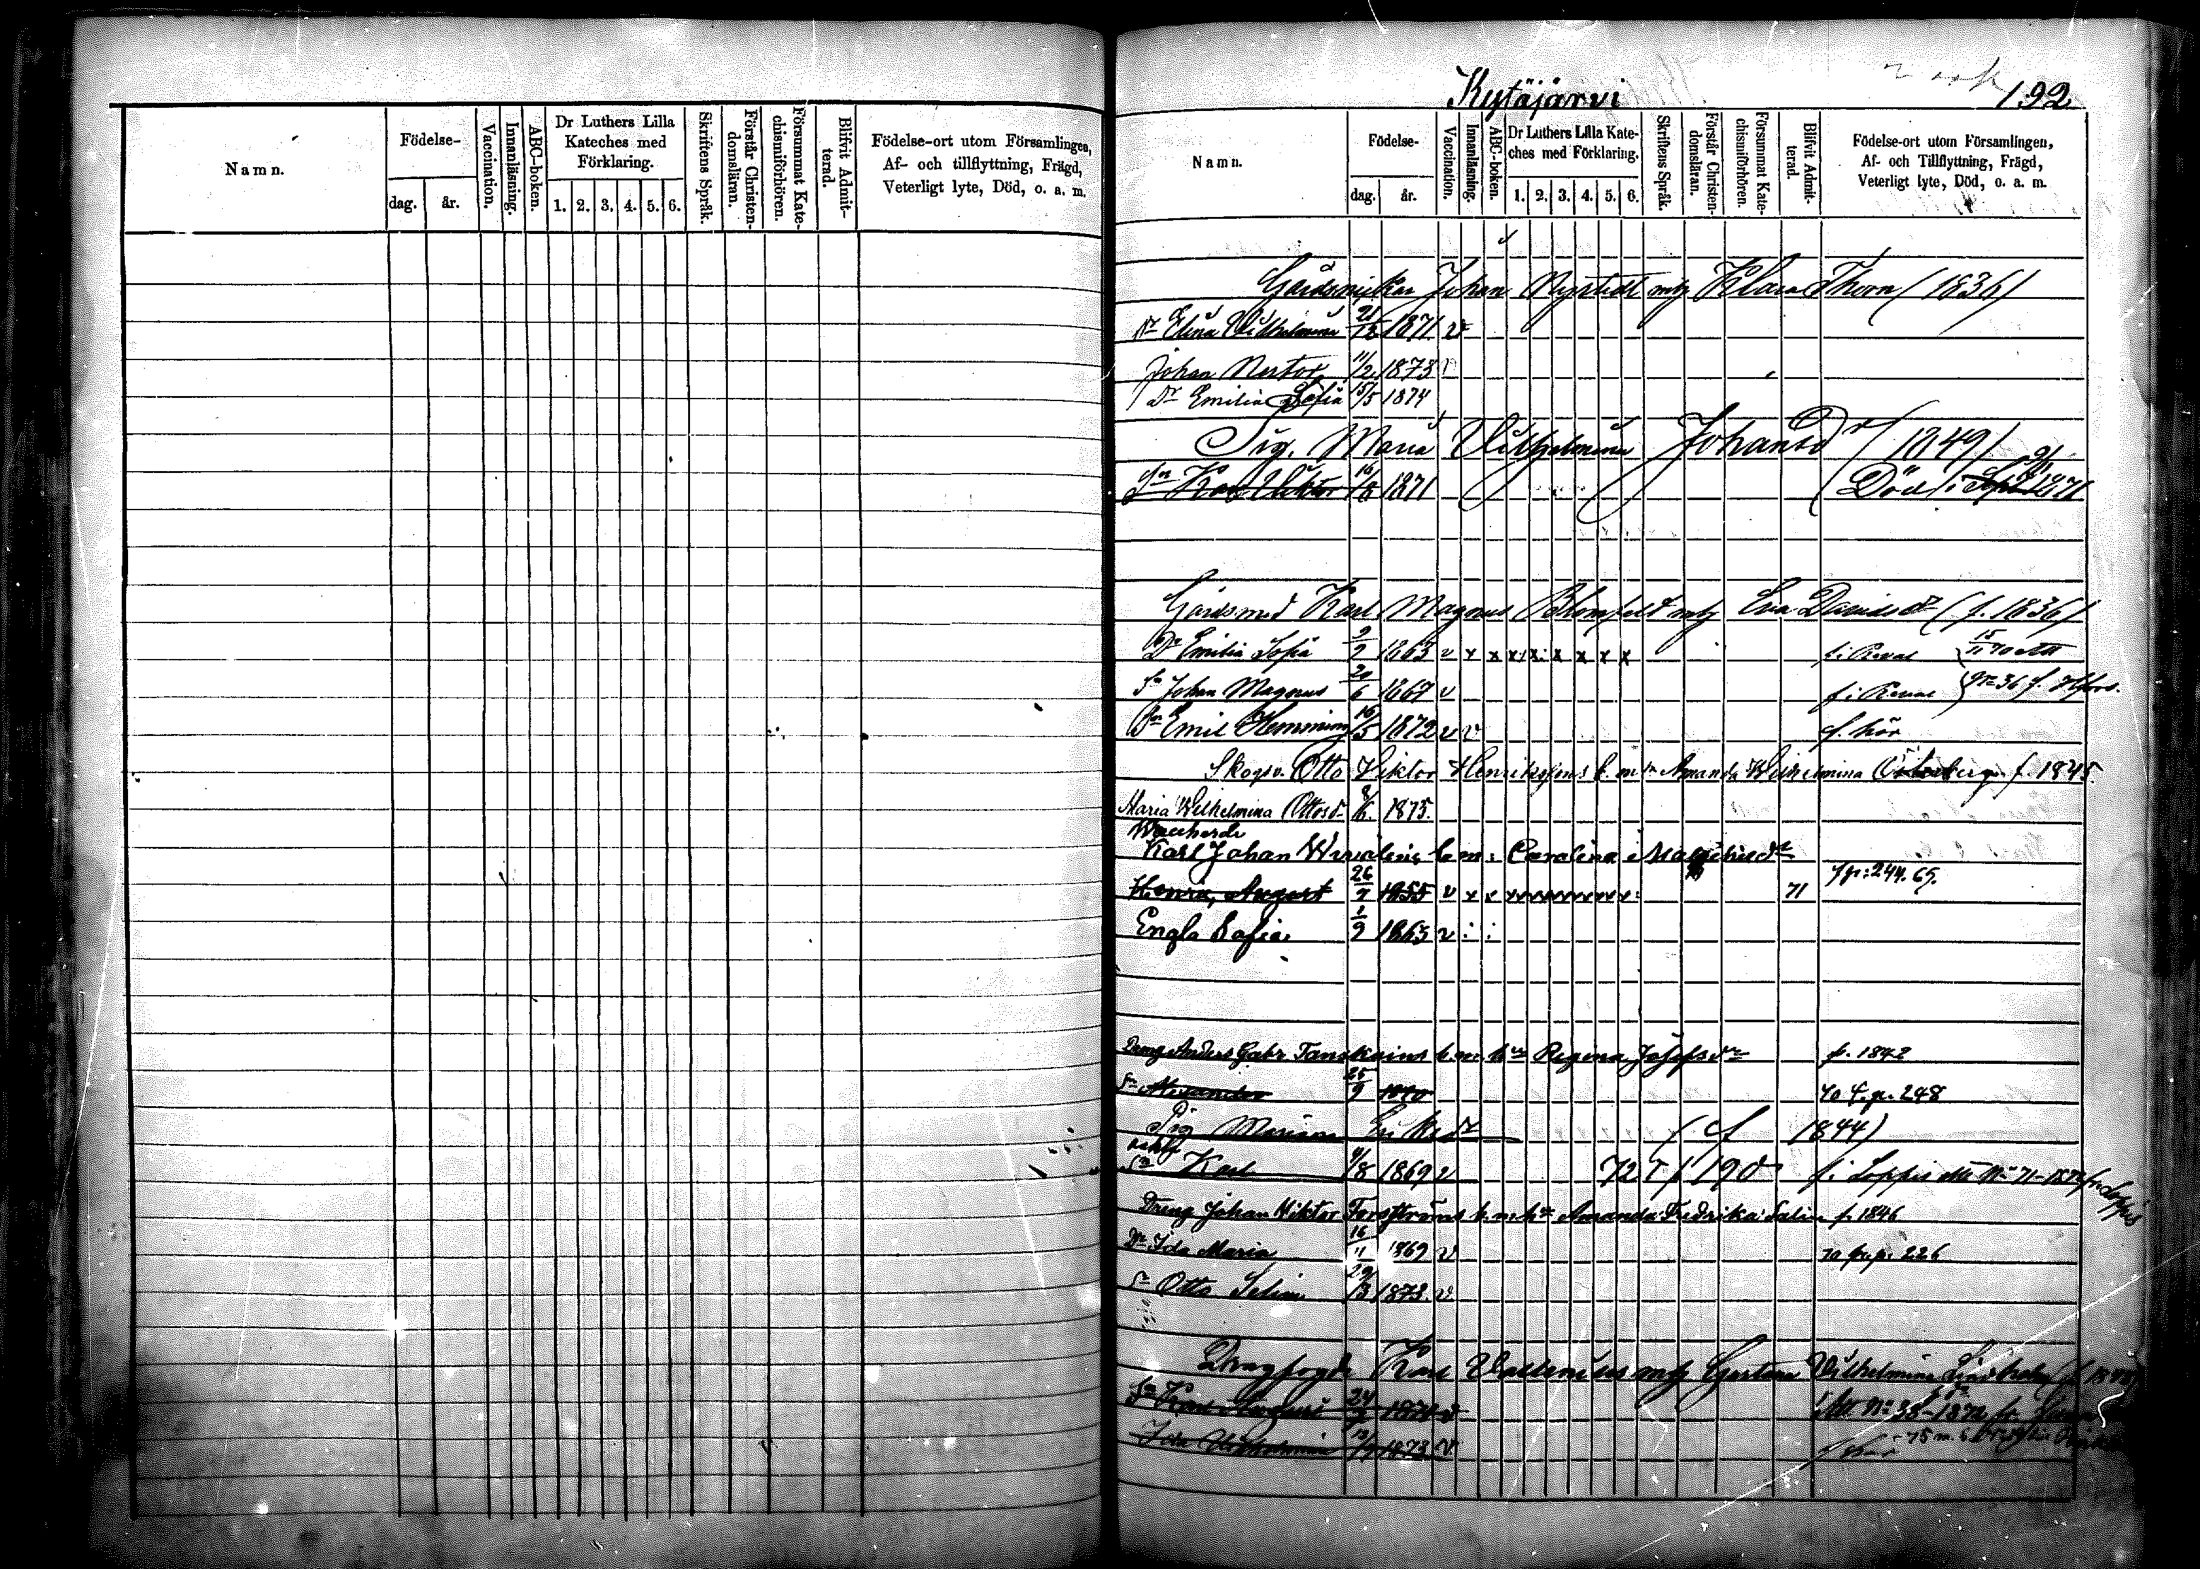 Namn.
Födelse-
dag.
år.
Vaccination.
Innanläsning.
ABC-boken.
Dr Luthers Lilla
Kateches med
Förklaring.
1. 2. 3. 4. 5. 6.
Skriftens Språk.
Förstår Christen-
domsläran.
Försummat Kate-
chismiförhören.
Blifvit Admit-
terad.
Födelse-ort utom Församlingen,
Af- och tillflyttning, Frägd,
Veterligt lyte, Död, o. a. m.
Kytäjärvi
192
Namn.
Födelse-
dag.
år.
Vaccination.
Innanläsning.
ABC-boken.
Dr Luthers Lilla Kate-
ches med Förklaring.
1. 2. 3. 4. 5. 6.
Skriftens Språk.
Förstår Christen-
domsläran.
Försummat Kate-
chismiförhören.
Blifvit Admit-
terad.
Födelse-ort utom Församlingen,
Af- och Tillflyttning, Frägd,
Veterligt lyte, Död, o. a. m.
Johan Nystedt Klara Thorn (1836)
Dr Elina Wilhelmina 21/12 1871 v
Johan Nestor 11/2 1873 v
Dr Emilia Sofia 15/5 1874
Pig. Maria Vilhelmina Johansdr (1849)
Sn Karl Viktor 16/8 1871 Död 1871
Gårdsmed Karl Magnus Blomfelt Eva Davidsdr (f. 1836)
Dr Emilia Sofia 9/9 1863 v x x x x x x x x f. i Reval 15/11 70 att
Sn Johan Magnus 20/6 1867 v f. i Reval No 36 f. Hfors.
Sn Emil Hemming 16/5 1872 v v f. här
Skogsv. Otto Viktor Henrikssons b. m. Amanda Wilhelmina f. 1845.
Maria Wilhelmina Ottosd. 8/6. 1875.
Karl Johan b. m. Carolina
Henrik August 26/7 1855 v x x x x x x x x 71 f p: 244. 69.
Engla Sofia 1/9 1863 v
Dreng Anders Gabr Tanskains b. m. h. Regina Josefsdr f. 1842
Sn Alexander 25/9 1870 70 f. p. 248
Pig Mariana Eriksdr (f 1844)
Sn Karl 4/8 1869 v 72 T p 190 f. i Loppis att No 71-1872 fr Loppis
Dreng Johan Viktor Forsströms b. m. h. Amanda Fredrika Salin f. 1846
Dr Ida Maria 16/11 1869 v 70 fr p. 226
Sn Otto Selim 29/3 1873. v
Drengfogde Karl Wallenius Gustava Vilhelmina
Sn Karl August 24/2 1871 v att No 38-1872 fr.
Ida Vilhelmina 1873 v f här